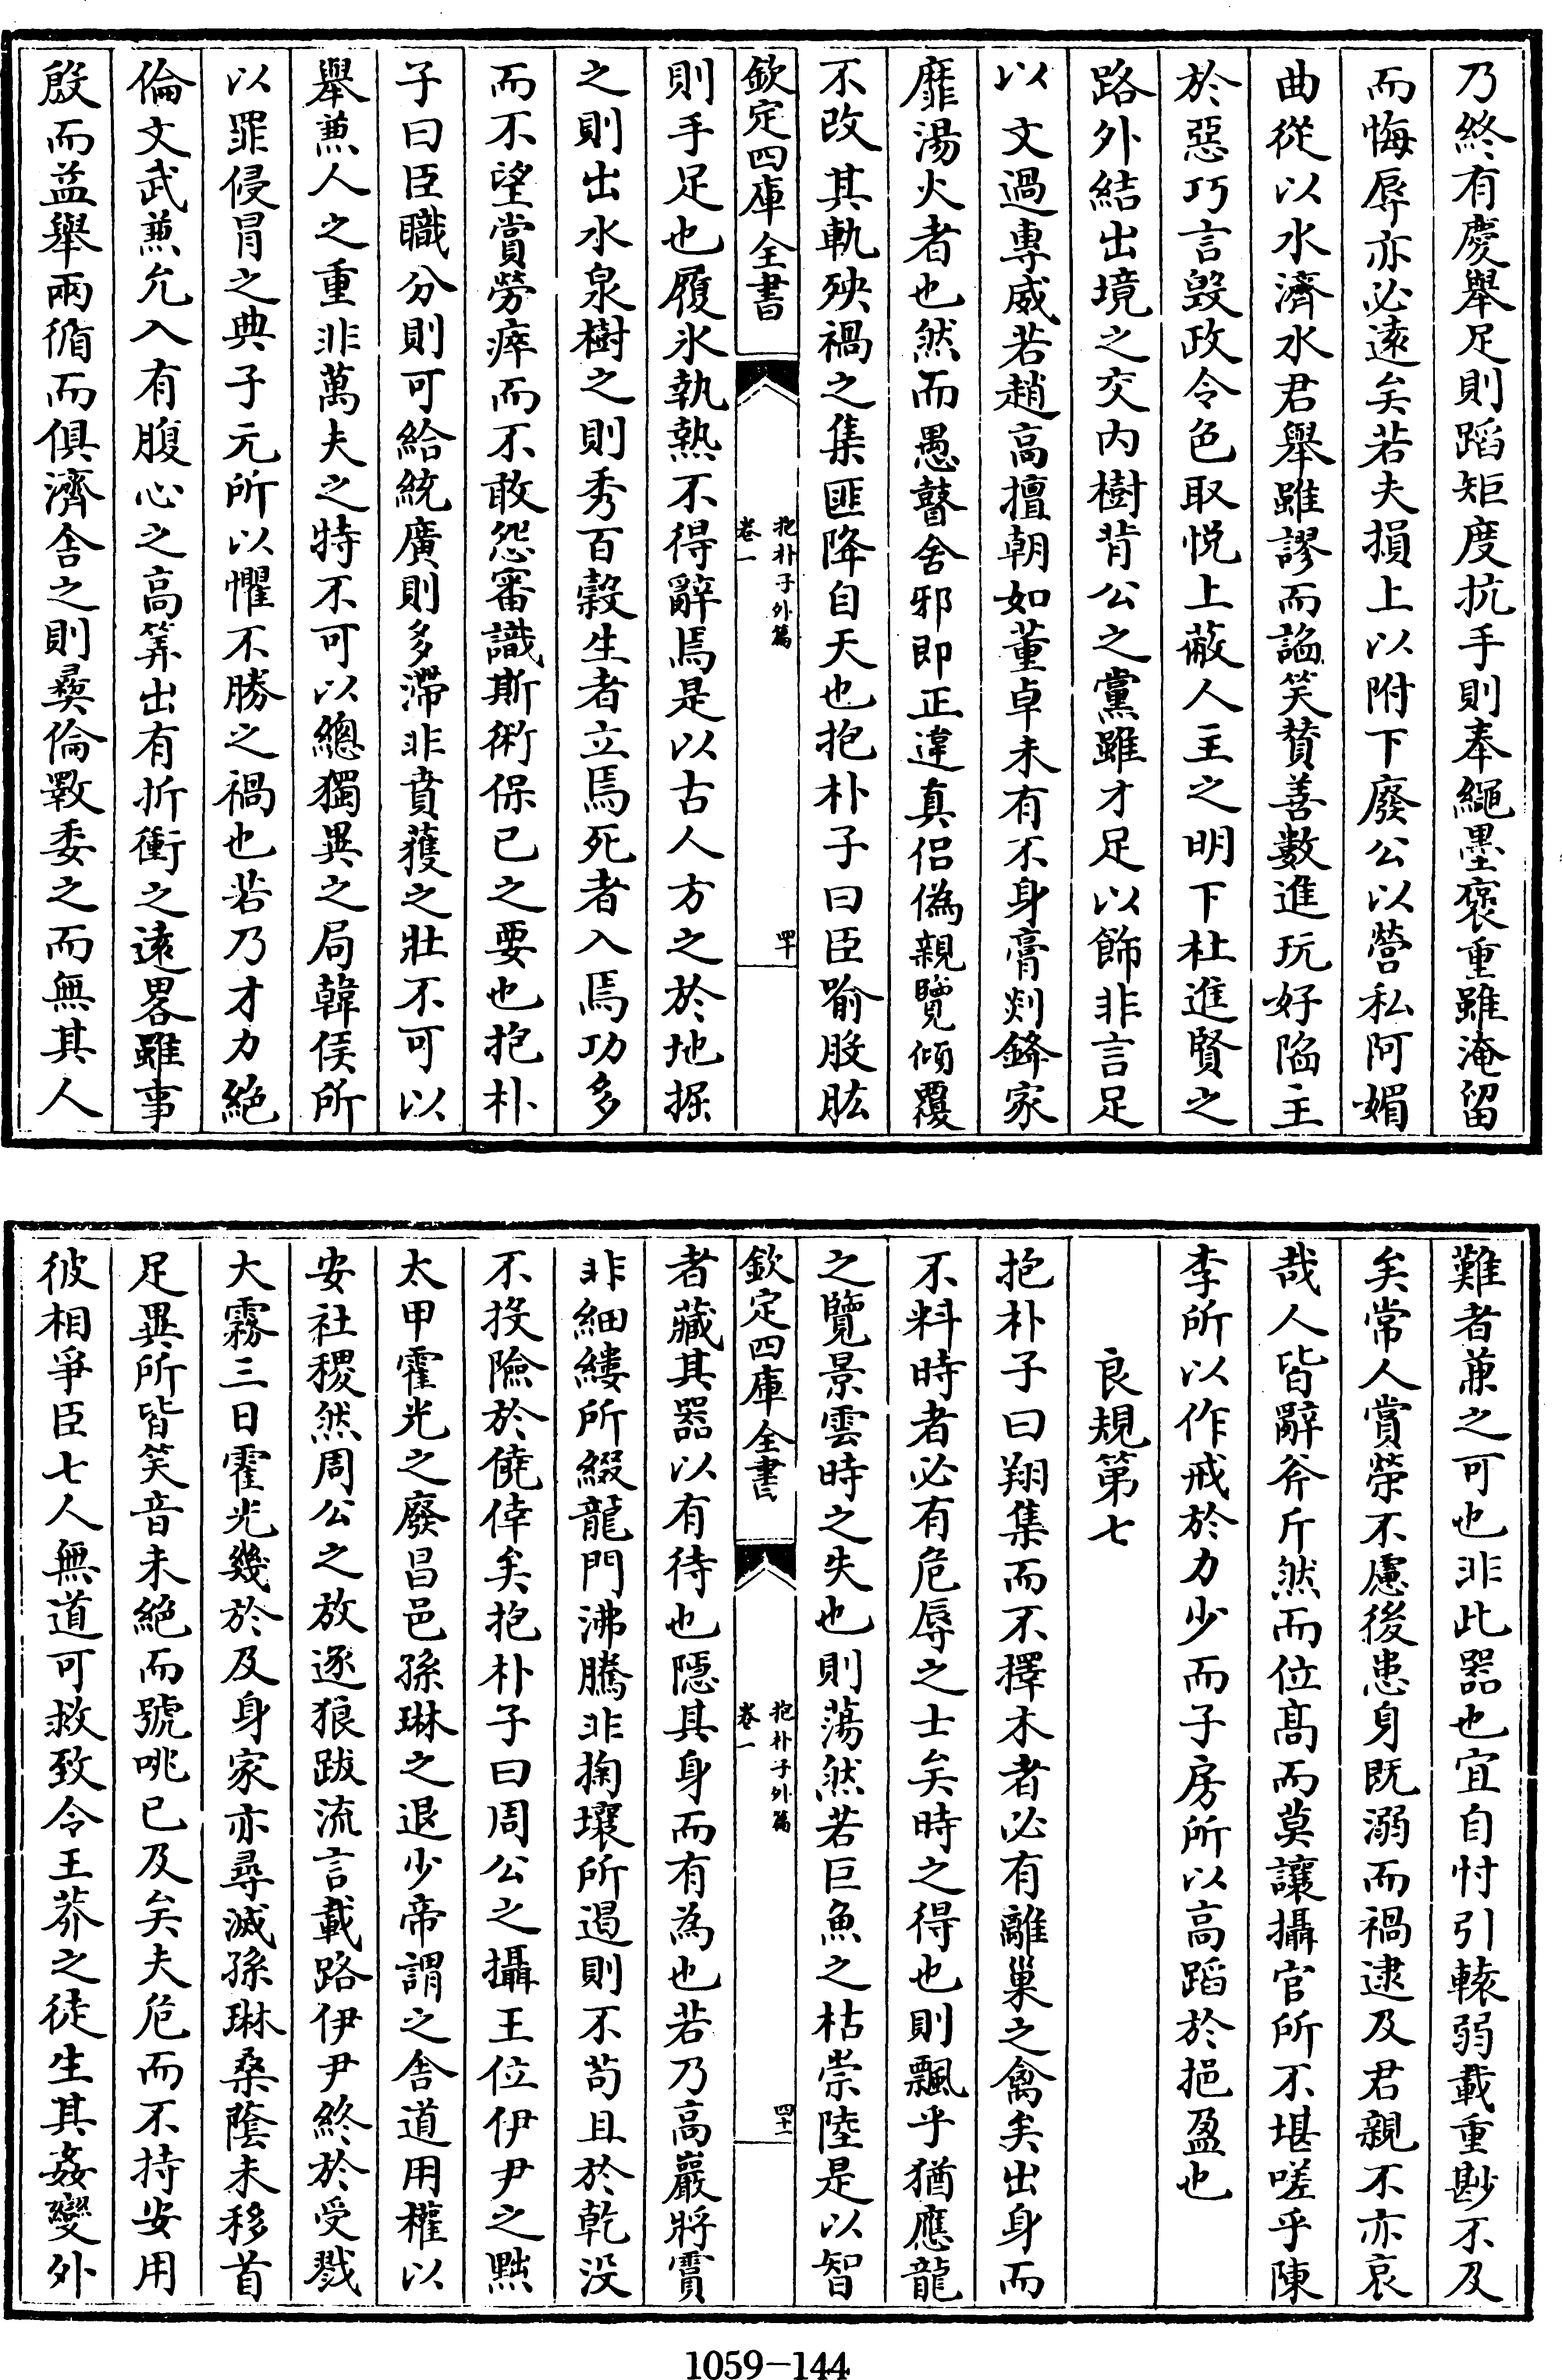 乃終有慶舉足則蹈矩度抗手則奉繩墨褒重雖淹留
而悔辱亦必遠矣若夫損上以附下廢公以營私阿媚
曲從以水濟水君舉雖謬而諂笑贊善數進玩好陷主
於惡巧言毀政令色取悅上蔽人主之明下杜進賢之
路外結出境之交內樹背公之黨雖才足以飾非言足
以文過專威若趙高擅朝如董卓未有不身膏剡鋒家
靡湯火者也然而愚瞽舍邪即正違真侶偽親覽傾覆
不改其軌殃禍之集匪降自天也抱朴子曰臣喻股肱
欽定四庫全書
抱朴子外篇
卷一
四十
則手足也履冰執熱不得辭焉是以古人方之於地掘
之則出水泉樹之則秀百穀生者立焉死者入焉功多
而不望賞勞瘁而不敢怨審識斯術保己之要也抱朴
子曰臣職分則可給統廣則多滯非賁獲之壯不可以
舉兼人之重非萬夫之特不可以總獨異之局韓侯所
以罪侵冒之典子元所以懼不勝之禍也若乃才力絕
倫文武兼允入有腹心之高筭出有折衝之遠畧雖事
殷而益舉兩循而俱濟舍之則彝倫斁委之而無其人
難者兼之可也非此器也宜自忖引轅弱載重尠不及
矣常人賞榮不慮後患身既溺而禍逮及君親不亦哀
哉人皆辭斧斤然而位髙而莫讓攝官所不堪嗟乎陳
李所以作戒於力少而子房所以高蹈於挹盈也
良規第七
抱朴子曰翔集而不擇木者必有離巢之禽矣出身而
不料時者必有危辱之士矣時之得也則飄乎猶應龍
之覽景雲時之失也則蕩然若巨魚之枯崇陸是以智
欽定四庫全書
抱朴子外篇
卷一
四十一
者藏其器以有待也隱其身而有為也若乃高巖將霣
非細縷所綴龍門沸騰非掬壤所遏則不苟且於乾没
不投險於僥倖矣抱朴子曰周公之攝王位伊尹之黜
太甲霍光之廢昌邑孫琳之退少帝謂之舎道用權以
安社稷然周公之放逐狼跋流言載路伊尹終於受戮
大霧三日霍光幾於及身家亦尋滅孫琳桑蔭未移首
足異所皆笑音未絕而號咷已及矣夫危而不持安用
彼相爭臣七人無道可救致令王莽之徒生其姦變外
1059-144